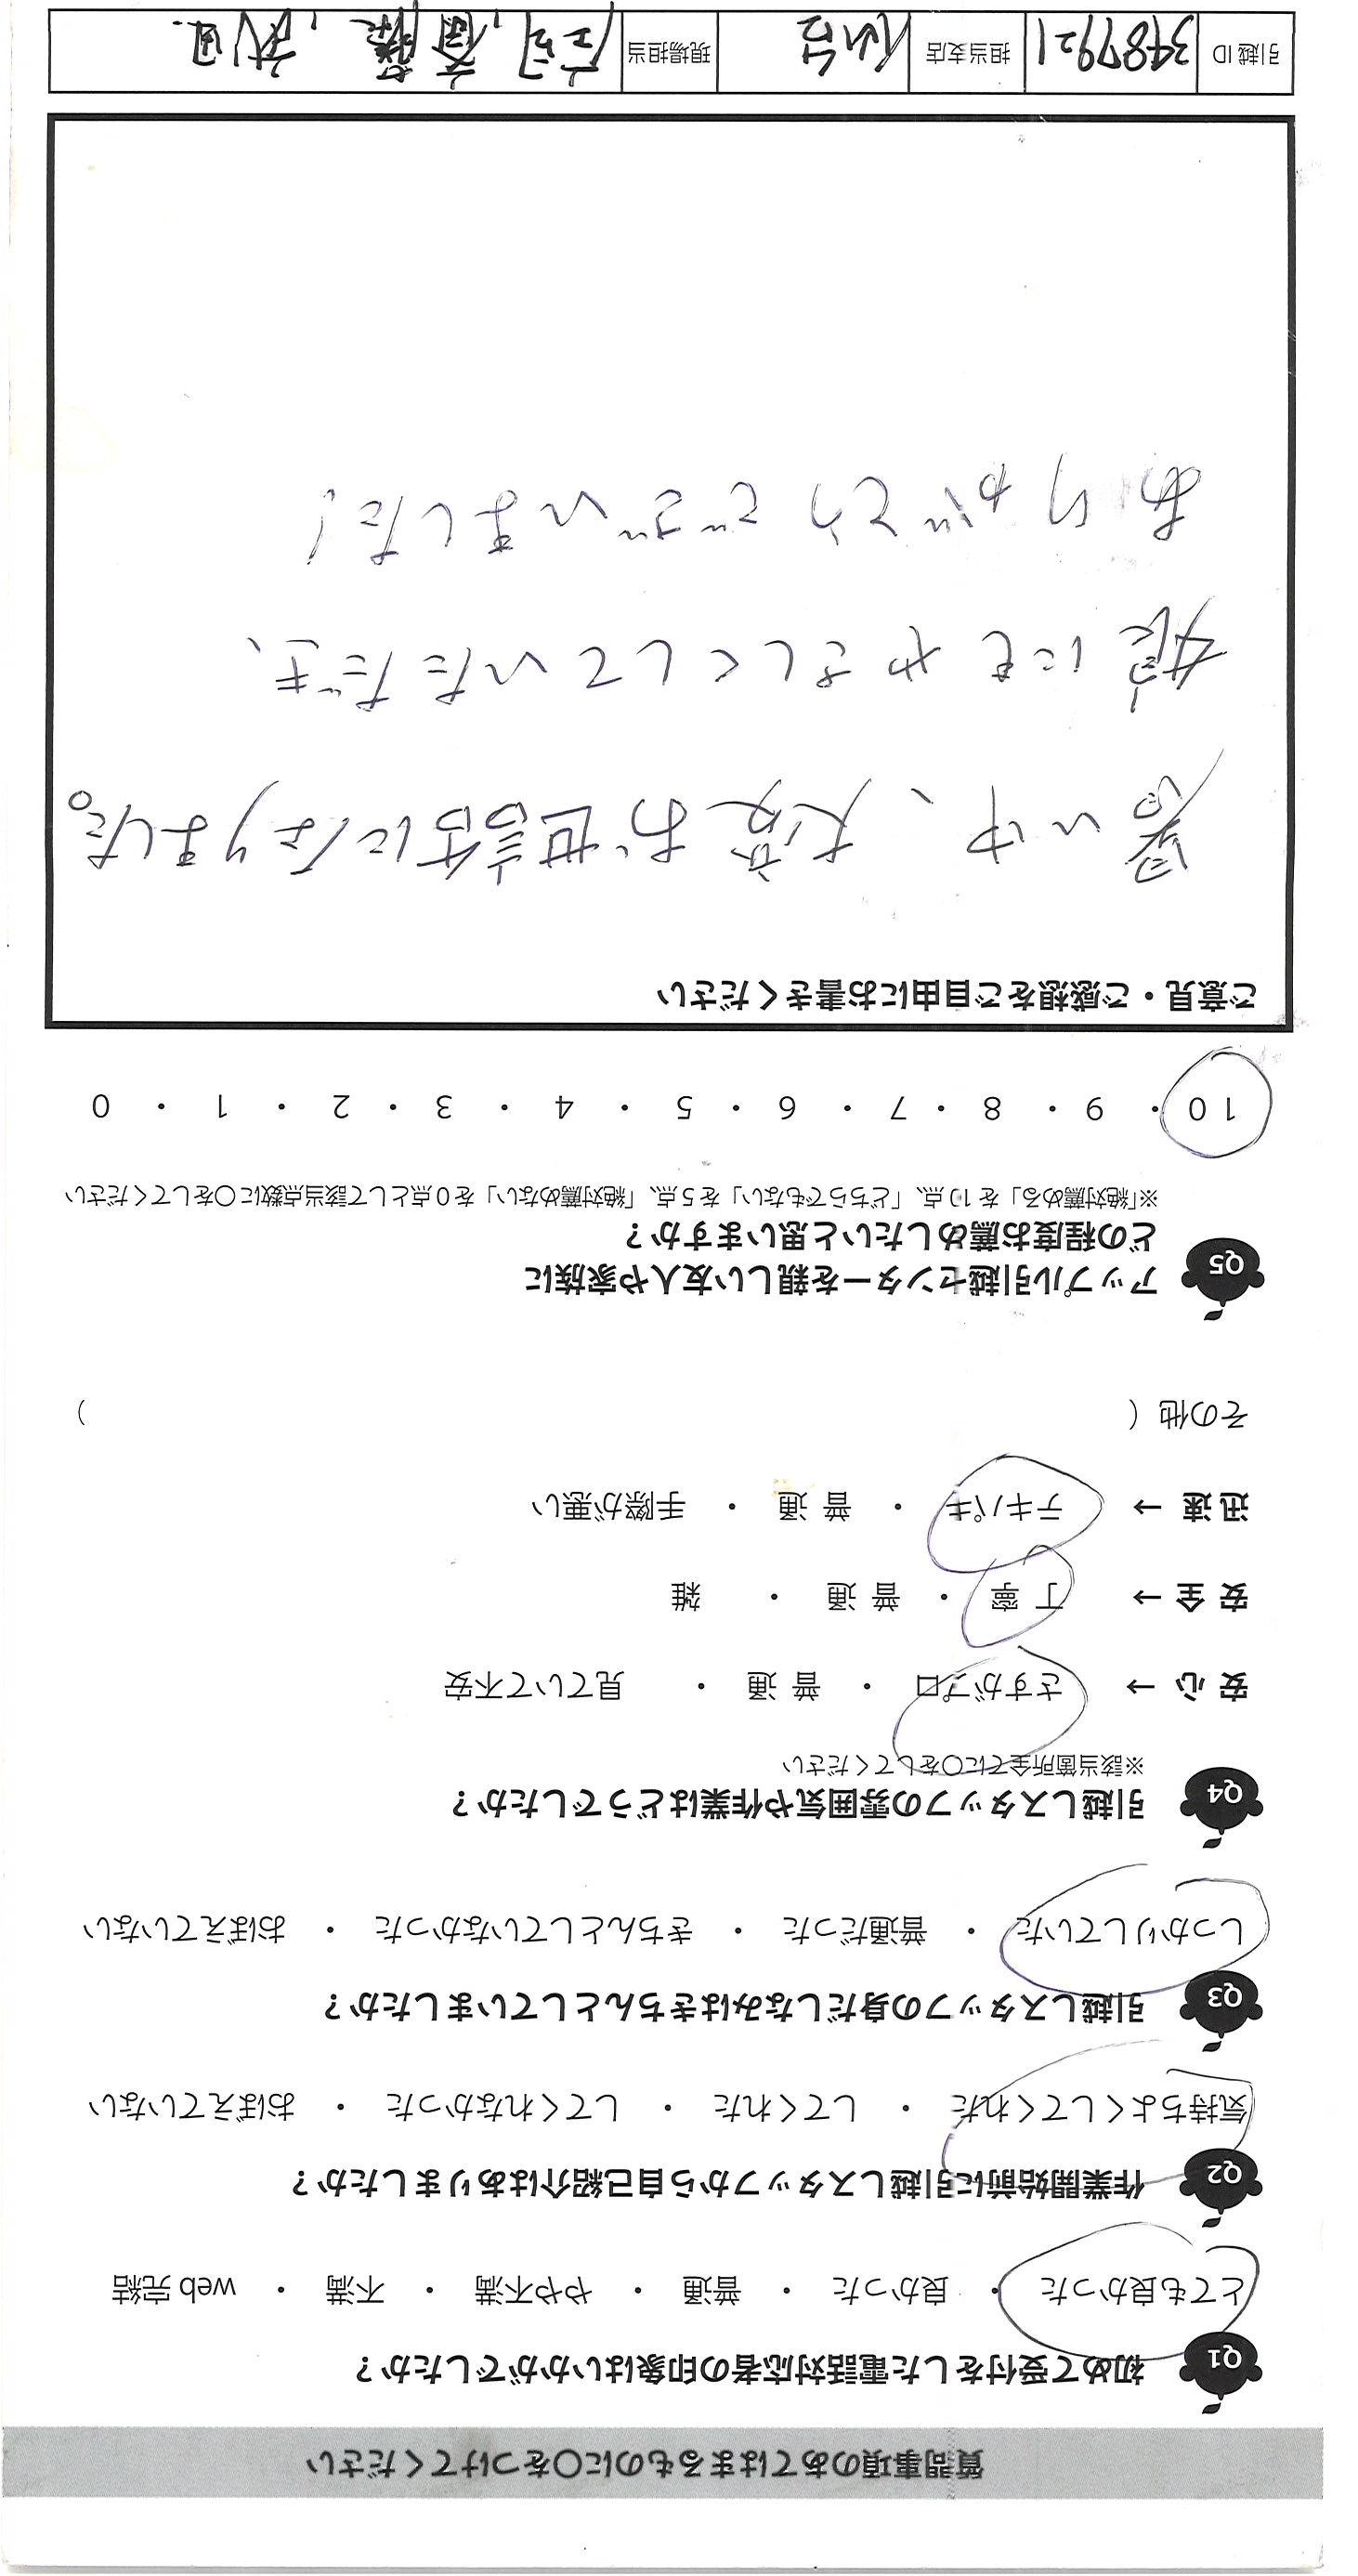 質問事項のあてはまるものに〇をつけてください
Q1 初めて受付をした電話対応者の印象はいかがでしたか？
とても良かった ・ 良かった ・ 普通 ・ やや不満 ・ 不満 ・ web 完結
Q2 作業開始前に引越しスタッフから自己紹介はありましたか？
気持ちよくしてくれた ・ してくれた ・ してくれなかった ・ おぼえていない
Q3 引越しスタッフの身だしなみはきちんとしていましたか？
しっかりしていた ・ 普通だった ・ きちんとしていなかった ・ おぼえていない
Q4 引越しスタッフの雰囲気や作業はどうでしたか？
※該当箇所全てに〇をしてください
安心 → さすがプロ ・ 普通 ・ 見ていて不安
安全 → 丁寧 ・ 普通 ・ 雑
迅速 → テキパキ ・ 普通 ・ 手際が悪い
その他（ ）
Q5 アップル引越センターを親しい友人や家族に
どの程度お薦めしたいと思いますか？
※「絶対薦める」を10点、「どちらでもない」を5点、「絶対薦めない」を0点として該当点数に〇をしてください
10 ・ 9 ・ 8 ・ 7 ・ 6 ・ 5 ・ 4 ・ 3 ・ 2 ・ 1 ・ 0
ご意見・ご感想をご自由にお書きください
暑い中、大変お世話になりました。
娘にもやさしくしていただき、
ありがとうございました！
引越ID 3487921 担当支店 仙台 現場担当 庄司, 斎藤, 武田.